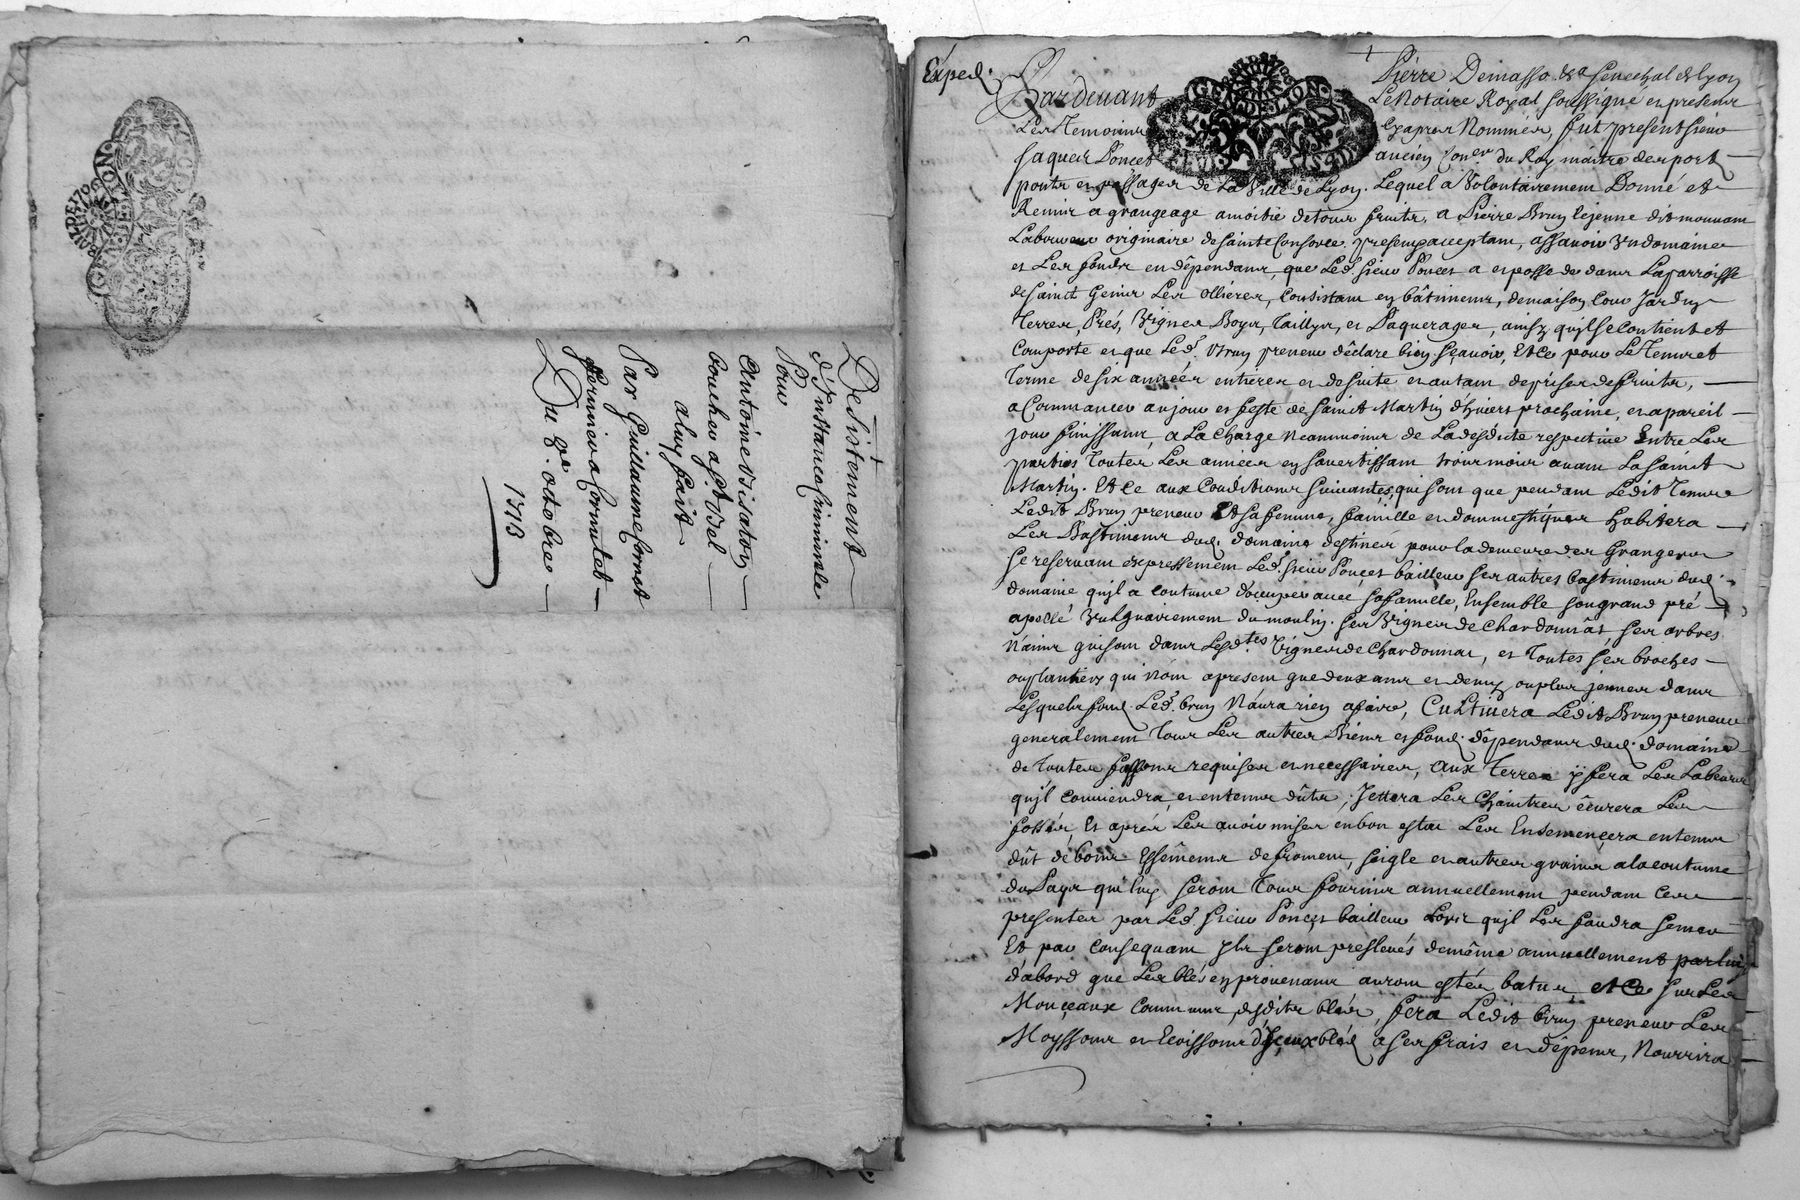 Desistement
d'Instance Criminnele
Pour
Antoine Visaton
boucher a St. Vbel
aluy fait
Par Guillaume Cornut
fermier a Cornutel
Du 9e. octobre
1713
Exped.
Pardevant Pierre Demasso &a Senechal de Lyon
Le Notaire Royal soussigné en presence
Les Temoins Cyapres Nommés, fut present sieur
Jaques Poncet ancien Coner du Roy maitre des port
ponts et passages de La Ville de Lyon. Lequel a Volontairement Donné et
Remis a grangeage amoitié de tous fruits, a Pierre Brun lejeune dit mounam
Laboureur originaire de Sainte Consorce present acceptant, assavoir Vn domaine
et Les fonds en dépendans, que Led. sieur Poncet a et possede dans La parroisse
de Saint Genis Les Ollieres, Consistant en bâtimens, de maison, Cour Jardin
Terres, Prés, Vignes Boys, Taillys, et Paquerages, ainsy qu'il se Contient et
Comporte et que Led. Brun preneur déclare bien sçauoir, Et Ce pour Le Temps et
terme de six années entieres et de suite et autant de prises de fruits,
a Commancer au jour et feste de Saint Martin d'hiuert prochaine, et a pareil
jour finissant, a La Charge Neammoins de La desdite respectiue Entre Les
parties Toutes Les années en s'auertissant trois mois auant La Saint
Martin. Et Ce aux Conditions suiuantes, qui sont que pendant Ledit Temps
Ledit Brun preneur Et sa femme, famille et dommestiques habitera
Les Bastimens dud. domaine destinés pour la demeure des Grangers
se reseruant expressement Led. sieur Poncet bailleur ses autres bastimens dud.
domaine qu'il a Coutume d'occuper auec sa famille, Ensemble son grand pré
apellé Vulguairement du moulin. ses Vignes de Chardonnât, ses arbres
Nains qui sont dans Lesd.tes Vignes de Chardonnat, et Toutes ses broches
ou plantiers qui n'ont apresent que deux ans et demy ou plus jeunes dans
Lesquels fond. Led. brun N'aura rien afaire, Cultiuera Ledit Brun preneur
generalement Tous Les autres Biens et fond. dépendans dud. domaine
de Toutes fassons requises et necessaires, Aux Terres y fera Les Labeurs
qu'il Conuiendra et en temps dûts, Jettera Les Chaintres écurera Les
fossés, Et aprés Les auoir mises en bon estat Les Ensemençera en temps
dût de bons Essémens de froment, seigle et autres grains a la coutume
du Pays qui luy seront Tous fournis annuellement pendant Ces
presentes par Led. sieur Poncet bailleur Lors qu'il Les faudra semer
Et par Consequant ils seront preleués de même annuellement par luy
d'abord que Les blés en prouenans auront estés batus, et Ce sur Les
Monçeaux Communs desdits blés, fera Ledit brun preneur Les
Moyssons et Ecoissons d'iceux bléd a ses frais et dépens, Nourrira